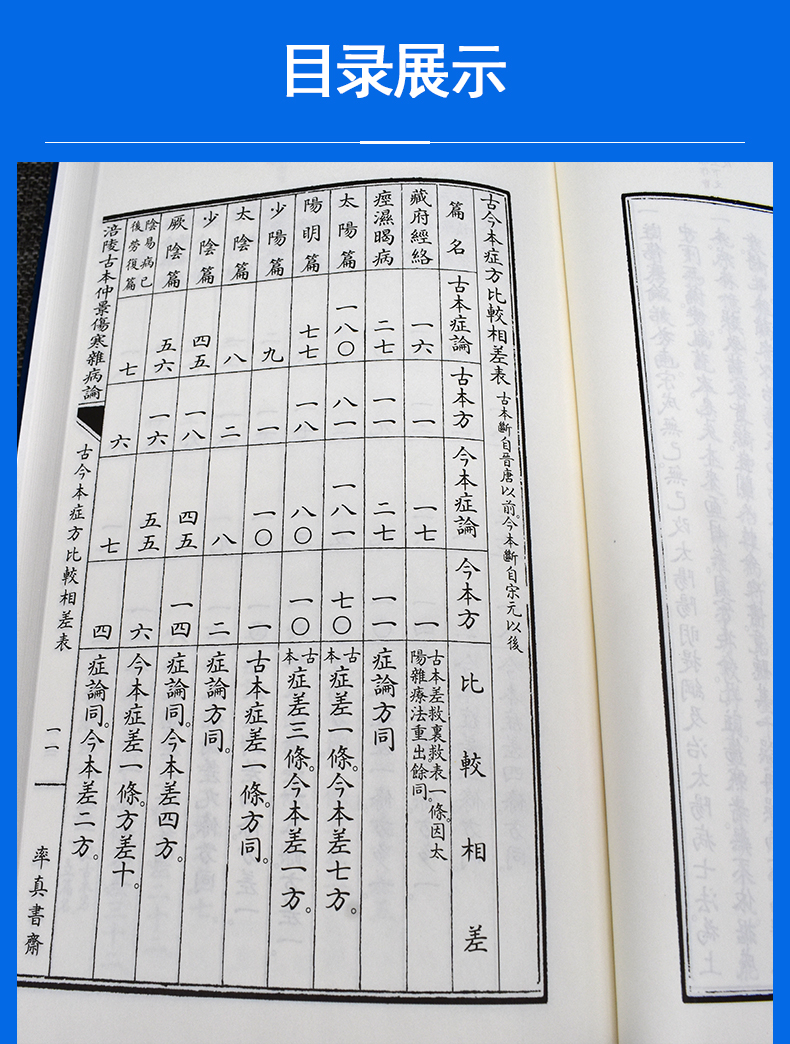 目录展示
古今本症方比較相差表 古本斷自晉唐以前。今本斷自宋元以後
篇名 古本症論 古本方 今本症論 今本方 比較相差
藏府經絡 一六 一 一七 一 古本差救裏救表一條。因太陽雜療法重出餘同。
痙濕暍病 二七 一一 二七 一一 症論方同
太陽篇 一八〇 八一 一八一 七〇 古本症差一條。今本差七方。
陽明篇 七七 一八 八〇 一〇 古本症差三條。今本差一方。
少陽篇 九 一 一〇 一 古本症差一條。方同。
太陰篇 八 二 八 二 症論方同。
少陰篇 四五 一八 四五 一四 症論同。今本差四方。
厥陰篇 五六 一六 五五 六 今本症差一條。方差十。
陰易病已後勞復篇 七 六 七 四 症論同。今本差二方。
涪陵古本仲景傷寒雜病論 古今本症方比較相差表 一一 率真書齋